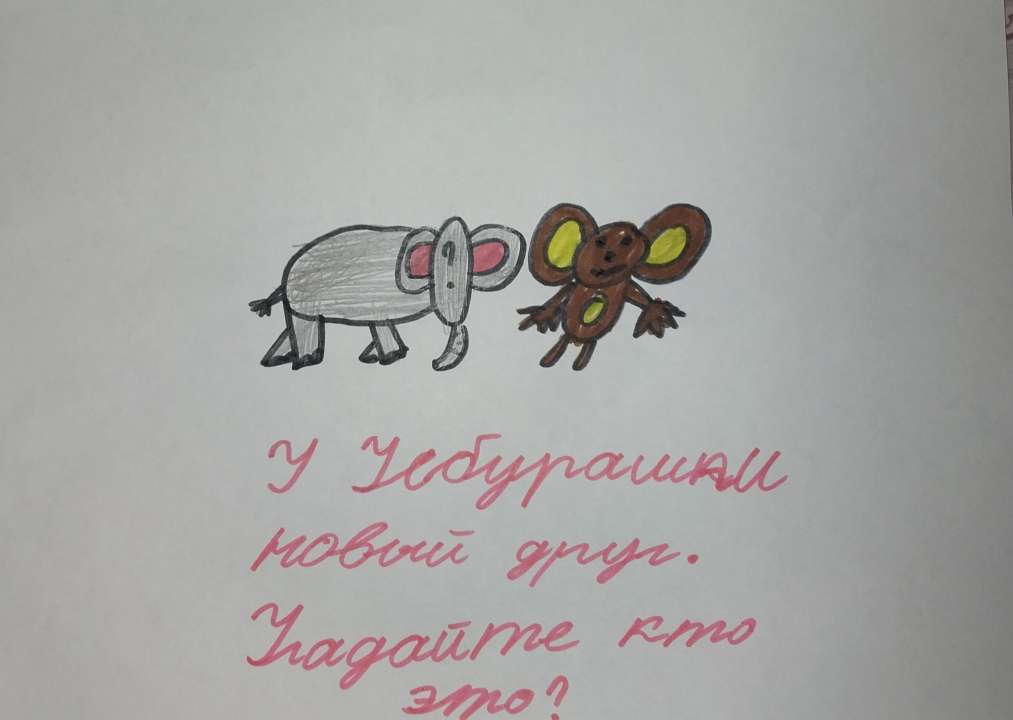 У Чебурашки
новый друг.
Угадайте кто
это?